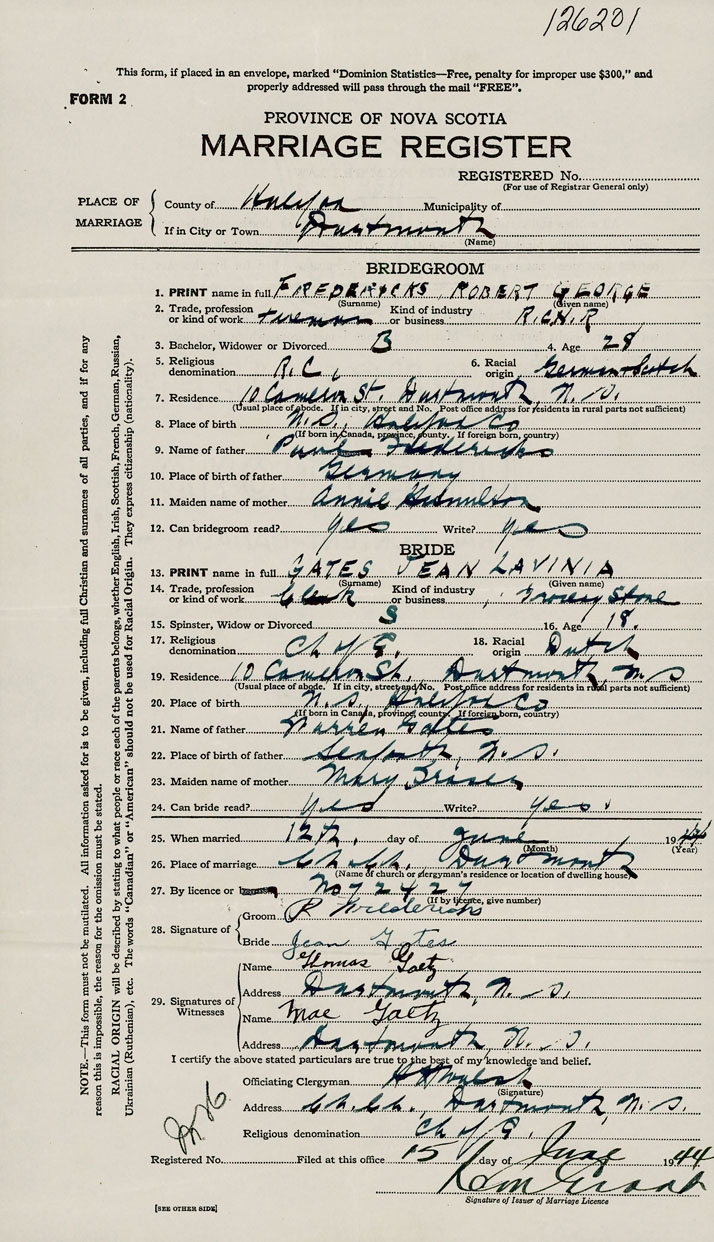 126201
This form, if placed in an envelope, marked "Dominion Statistics—Free, penalty for improper use $300," and
properly addressed will pass through the mail "FREE".
FORM 2
PROVINCE OF NOVA SCOTIA
MARRIAGE REGISTER
REGISTERED No.
(For use of Registrar General only)
PLACE OF MARRIAGE
County of Halifax Municipality of
If in City or Town Dartmouth
(Name)
BRIDEGROOM
1. PRINT name in full FREDERICKS ROBERT GEORGE
(Surname) (Given name)
2. Trade, profession or kind of work Fireman Kind of industry or business R.C.N.R
3. Bachelor, Widower or Divorced B 4. Age 28
5. Religious denomination R.C. 6. Racial origin German + Scotch
7. Residence 10 Cameron St. Dartmouth, N.S.
(Usual place of abode. If in city, street and No. Post office address for residents in rural parts not sufficient)
8. Place of birth N.S., Halifax Co
(If born in Canada, province, county. If foreign born, country)
9. Name of father Paul Fredericks
10. Place of birth of father Germany
11. Maiden name of mother Annie Hamilton
12. Can bridegroom read? yes Write? yes
BRIDE
13. PRINT name in full GATES JEAN LAVINIA
(Surname) (Given name)
14. Trade, profession or kind of work Clerk Kind of industry or business Grocery Store
15. Spinster, Widow or Divorced S 16. Age 18.
17. Religious denomination Ch of E. 18. Racial origin Dutch
19. Residence 10 Cameron St. Dartmouth, N.S
(Usual place of abode. If in city, street and No. Post office address for residents in rural parts not sufficient)
20. Place of birth N.S., Halifax Co
(If born in Canada, province, county. If foreign born, country)
21. Name of father Warren Gates
22. Place of birth of father Seaforth, N.S.
23. Maiden name of mother Mary Fraser
24. Can bride read? yes Write? yes.
25. When married 12th day of June 1944
(Month) (Year)
26. Place of marriage Ch. Ch. Dartmouth
(Name of church or clergyman's residence or location of dwelling house)
27. By licence or No 72427
(If by licence, give number)
28. Signature of
Groom R Fredericks
Bride Jean Gates
29. Signatures of Witnesses
Name Thomas Gaetz
Address Dartmouth, N.S.
Name Mae Gaetz
Address Dartmouth N.S.
I certify the above stated particulars are true to the best of my knowledge and belief.
Officiating Clergyman Walsh
(Signature)
Address Ch. Ch. Dartmouth, N.S.
Religious denomination Ch of E.
Registered No. Filed at this office 15 day of June 1944
Signature of Issuer of Marriage Licence
[SEE OTHER SIDE]
NOTE.—This form must not be mutilated. All information asked for is to be given, including full Christian and surnames of all parties, and if for any
reason this is impossible, the reason for the omission must be stated.
RACIAL ORIGIN will be described by stating to what people or race each of the parents belongs, whether English, Irish, Scottish, French, German, Russian,
Ukrainian (Ruthenian), etc. The words "Canadian" or "American" should not be used for Racial Origin. They express citizenship (nationality).